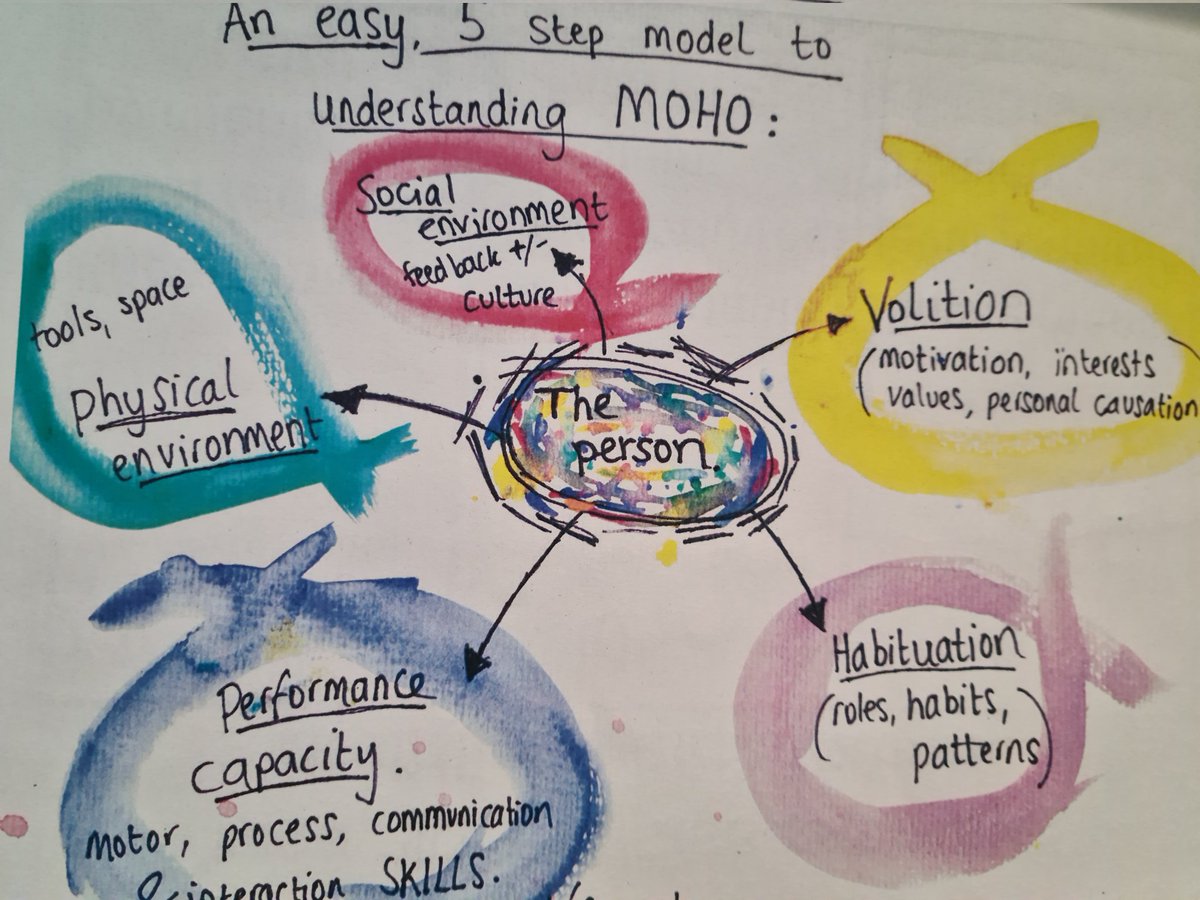 An easy, 5 step model to
understanding MOHO:
Social
environment
feedback +/-
culture
tools, space
physical
environment
Volition
(motivation, interests
values, personal causation
The
person.
Performance
capacity.
motor, process, communication
& interaction SKILLS.
Habituation
(roles, habits,
patterns)